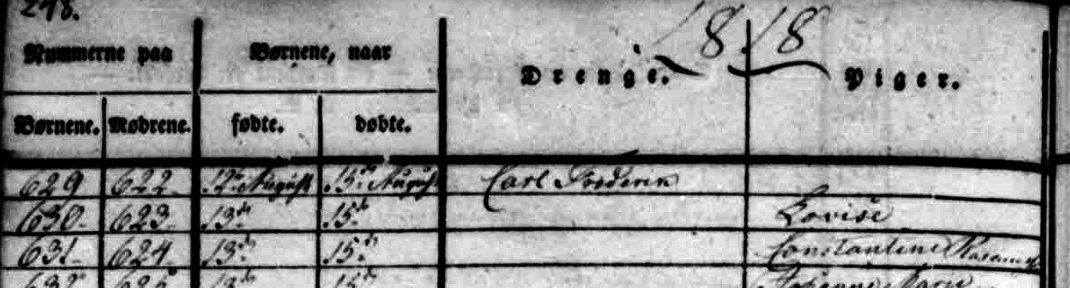 248.
1818
Nummerne paa Børnene, naar Drenge. Piger.
Børnene. Mødrene. fødte. døbte.
629 622 12te August 15de August Carl Frederik
630 623 13de 15de Lovise
631 624 13de 15de Constantine
632 625 13de 15de Johanne Marie